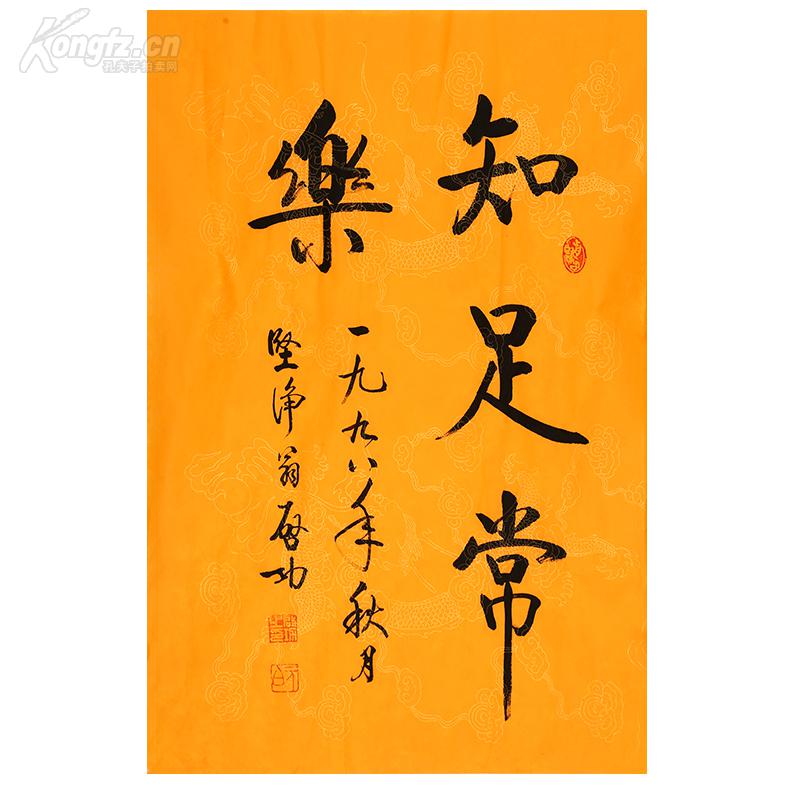 知足常
樂
一九九八年秋月
堅淨翁啟功
Kongfz.cn
孔夫子拍卖网